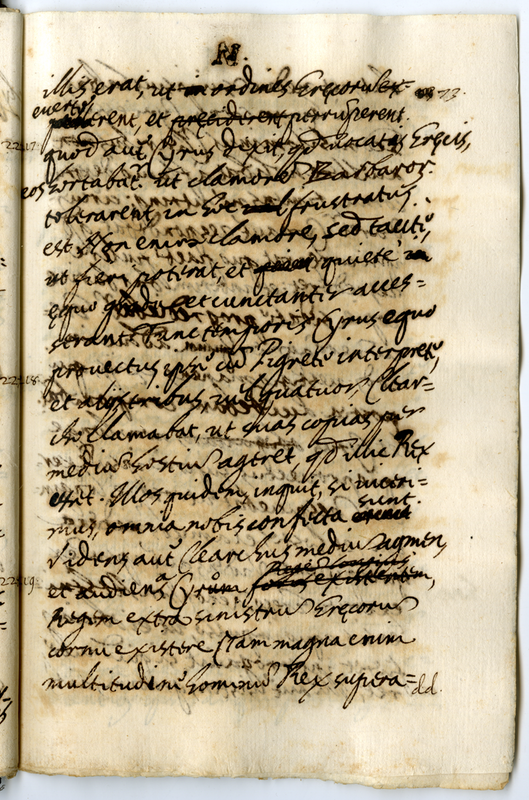 illis erat, ut in ordines Gręcorum
everterent, et perrumperent.
quod aut Cyrus dixit, Grecis,
eos hortabat ut clamore Barbaros
tolerarent, in hoc frustratus
est. Non enim clamore, sed taciti,
ut fieri poterat, et quiete in
ęquo et cunctanter acces=
serant. Hanc temporis Cyrus equo
provectus ipse cū Pigrete interprete,
et alijs tribus, quatuor, Clear=
cho clamabat, ut suas copias per
mediū hostiū ageret, qd illic Rex
esset. Illos quidem, inquit, si viceri=
mus, omnia nobis confecta sunt.
Videns aut Clearchus mediū agmen,
et audiens a Cyro
Regem extra sinistrū Grecorū
cornu existere (tam magna enim
multitudine hominū Rex supera=
dd.